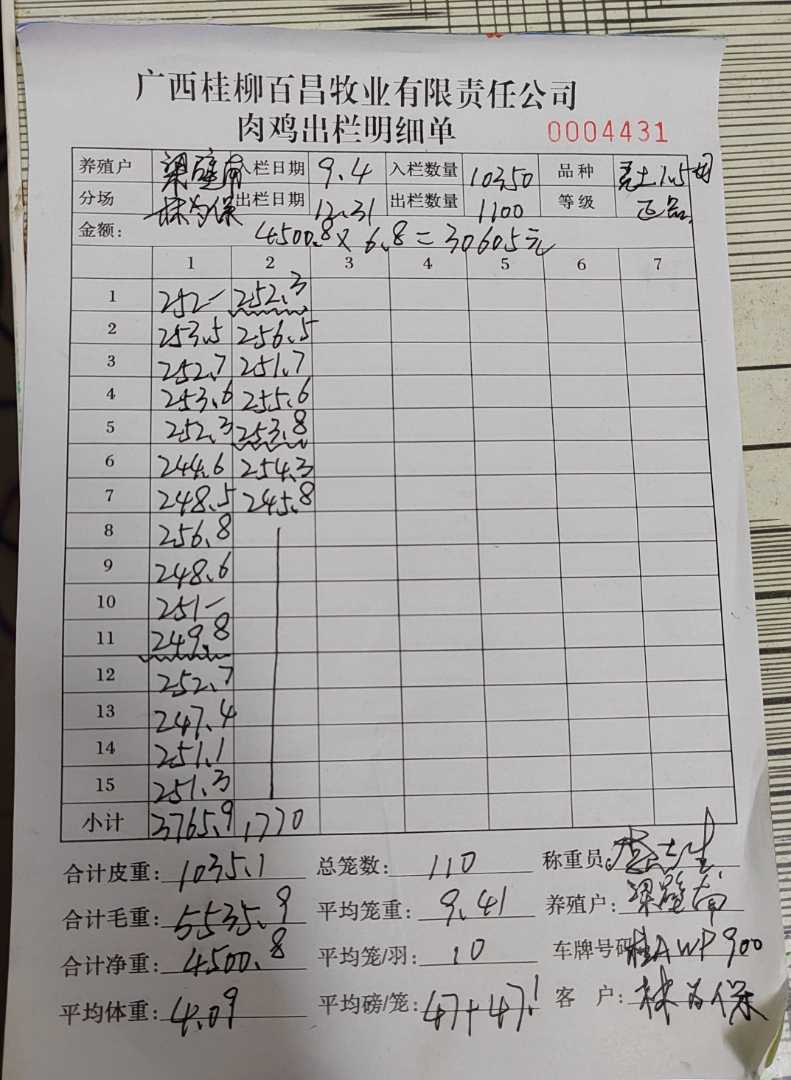 广西桂柳百昌牧业有限责任公司
肉鸡出栏明细单 0004431
养殖户 入栏日期 9.4 入栏数量 10350 品种
分场 林为保 出栏日期 12.31 出栏数量 1100 等级 正品
金额: 4500.8 × 6.8 = 30605元
1 2 3 4 5 6 7
1 252- 252.3
2 253.5 256.5
3 252.7 251.7
4 253.6 255.6
5 252.3 253.8
6 244.6 254.3
7 248.5 245.8
8 256.8
9 248.6
10 251-
11 249.8
12 252.7
13 247.4
14 251.1
15 251.3
小计 3765.9 1770
合计皮重: 1035.1 总笼数: 110 称重员:
合计毛重: 5535.9 平均笼重: 9.41 养殖户:
合计净重: 4500.8 平均笼/羽: 10 车牌号码: 桂AWP900
平均体重: 4.09 平均磅/笼: 47+47.1 客户: 林为保